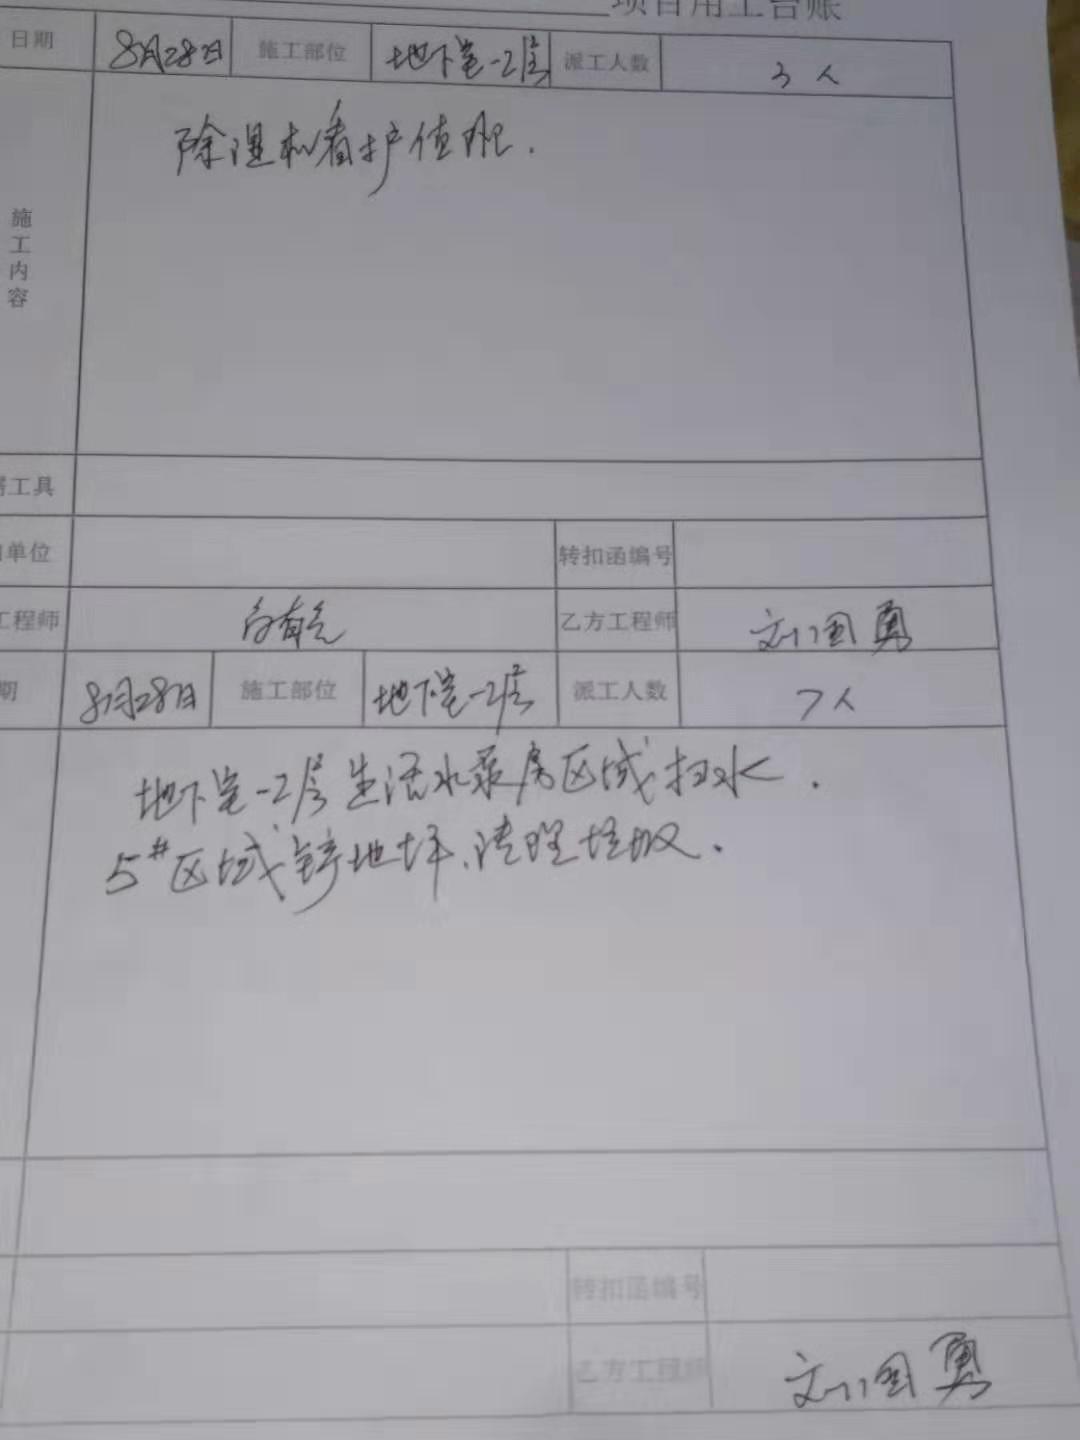 项目用工台账
日期 8月28日 施工部位 地下室-2层 派工人数 3人
施工内容 除湿机看护值班.
工具
单位 转扣函编号
工程师 乙方工程师 刘国勇
期 8月28日 施工部位 地下室-2层 派工人数 7人
地下室-2层生活水泵房区域扫水.
5#区域锌地坪、清理垃圾.
转扣函编号
乙方工程师 刘国勇